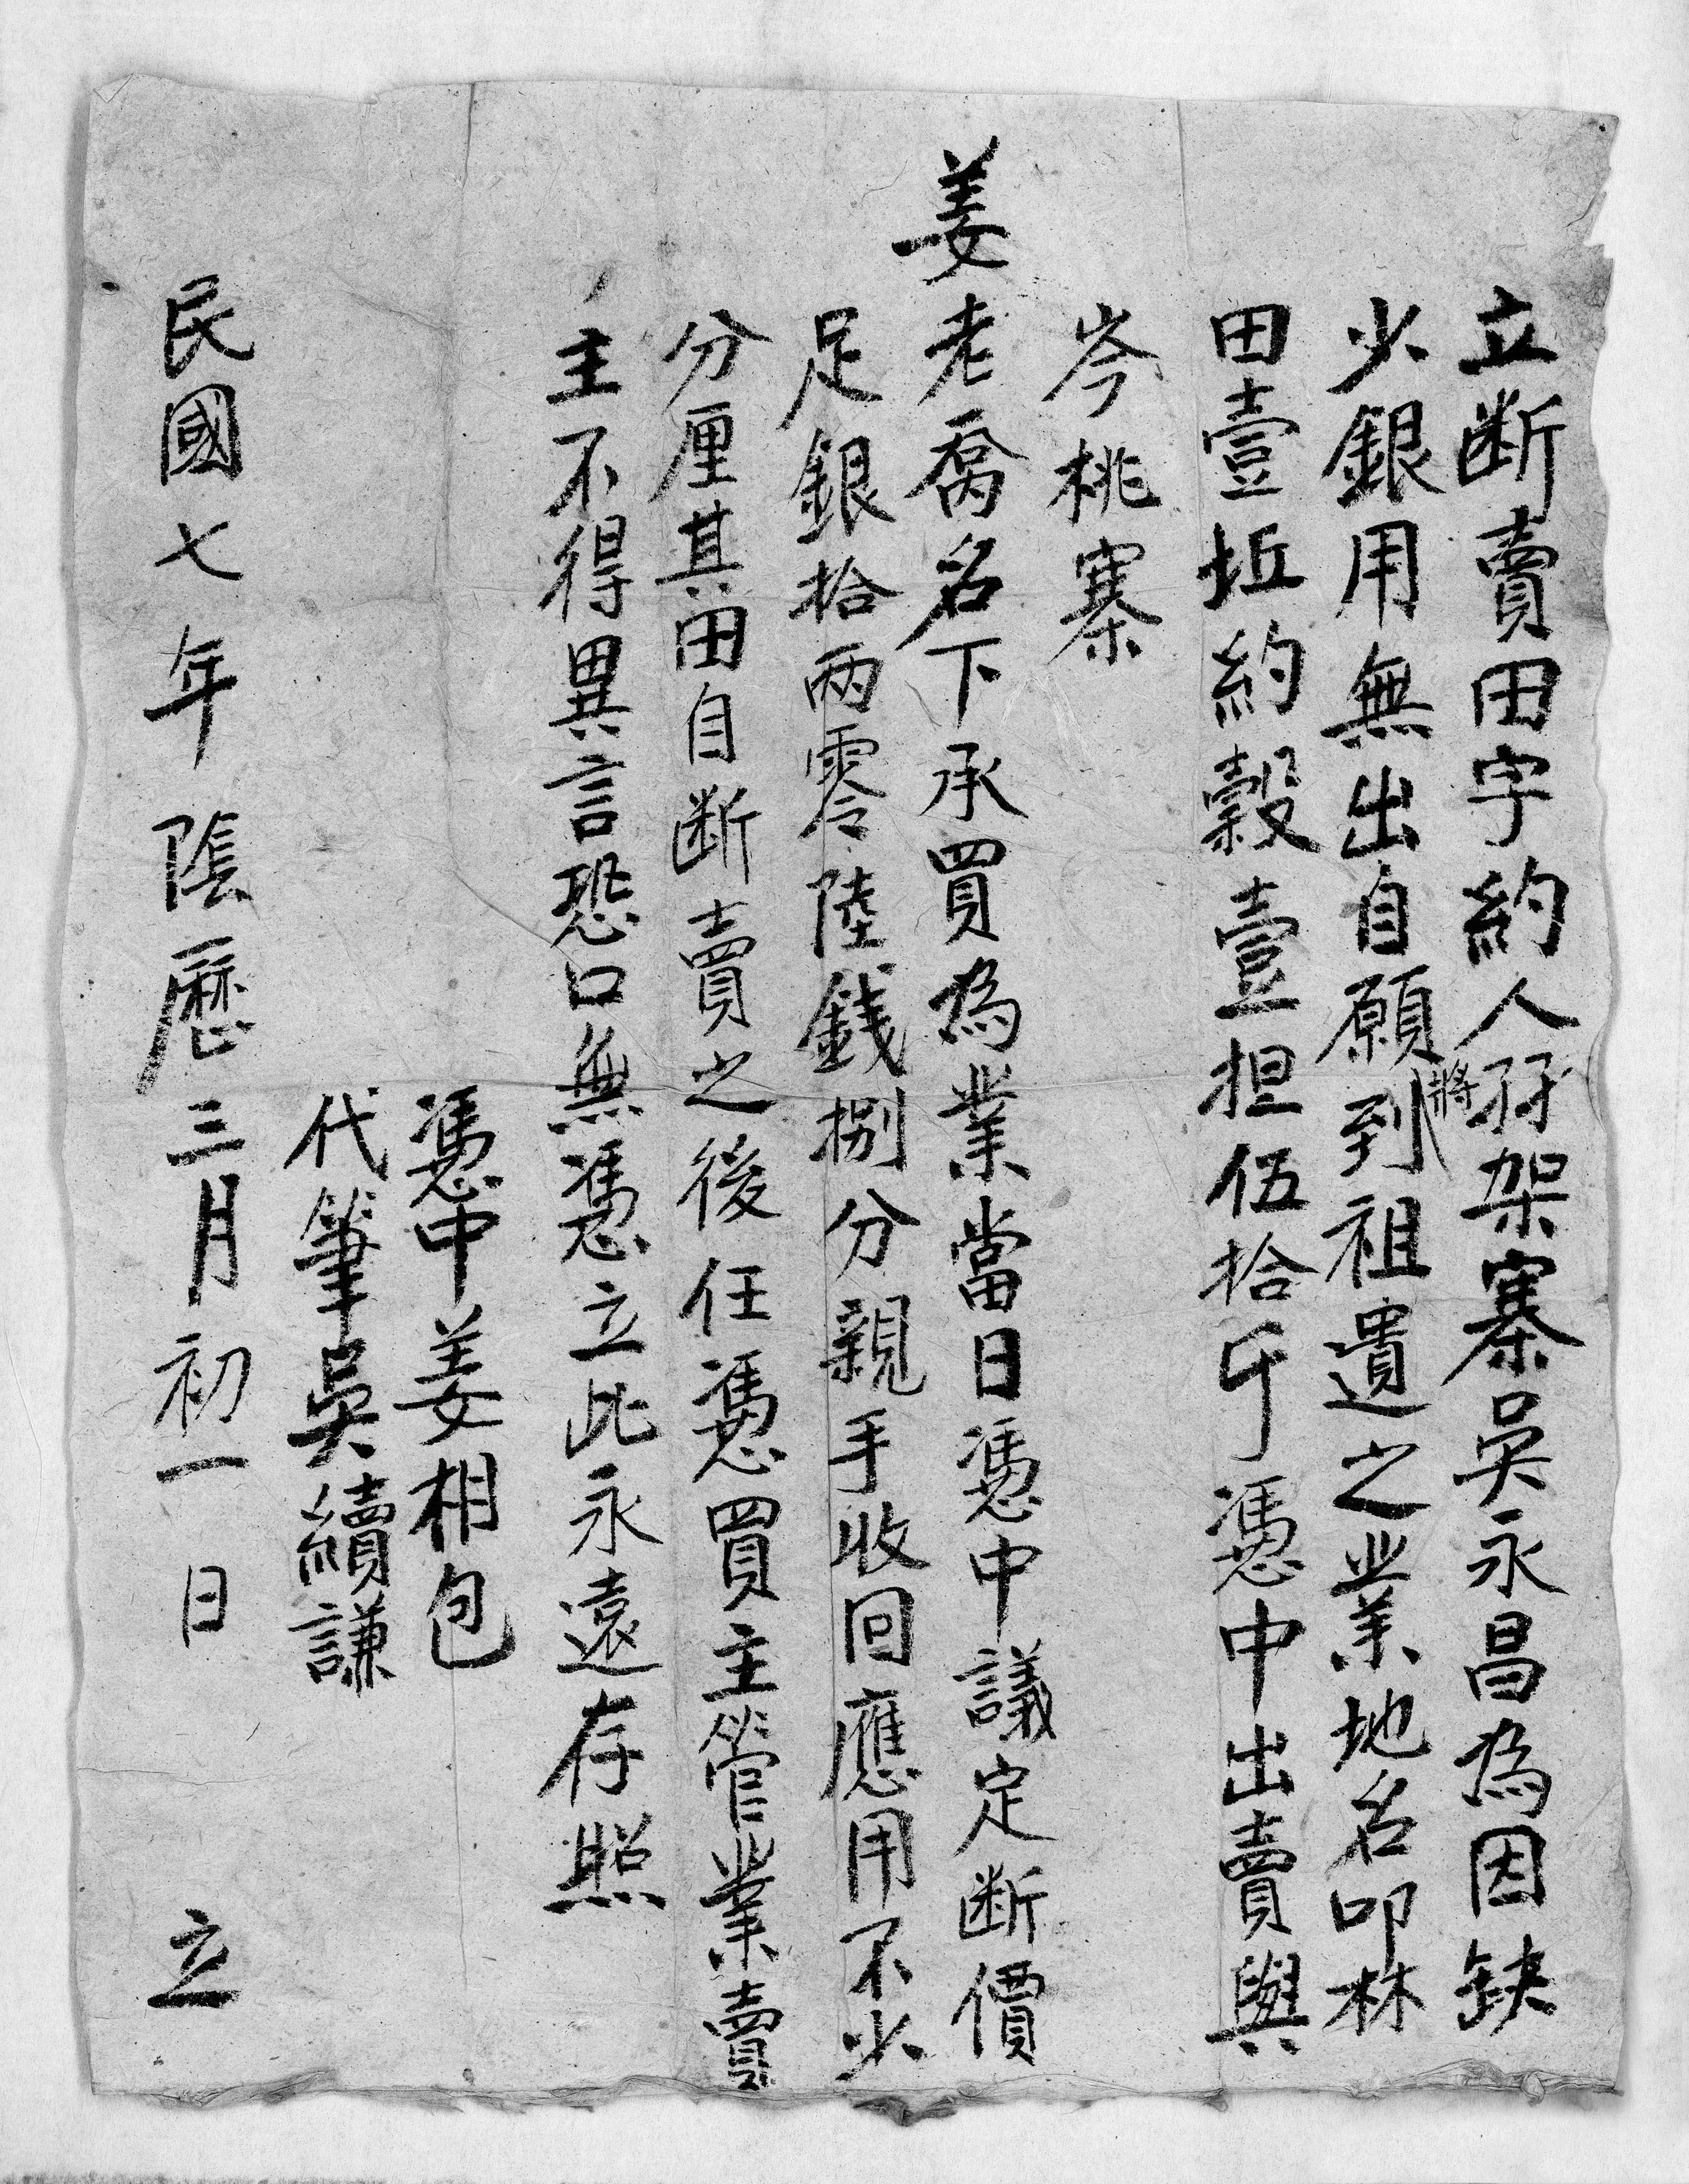 立断賣田字約人孖架寨吳永昌為因缺
少銀用無出自願將到祖遺之業地名叩林
田壹坵約穀壹担伍拾斤憑中出賣與
岑桃寨
姜老喬名下承買為業當日憑中議定断價
足銀拾両零陸錢捌分親手收回應用不少
分厘其田自断賣之後任憑買主管業賣
主不得異言恐口無憑立此永遠存照
憑中姜相包
代筆吳續謙
民國七年陰曆三月初一日 立